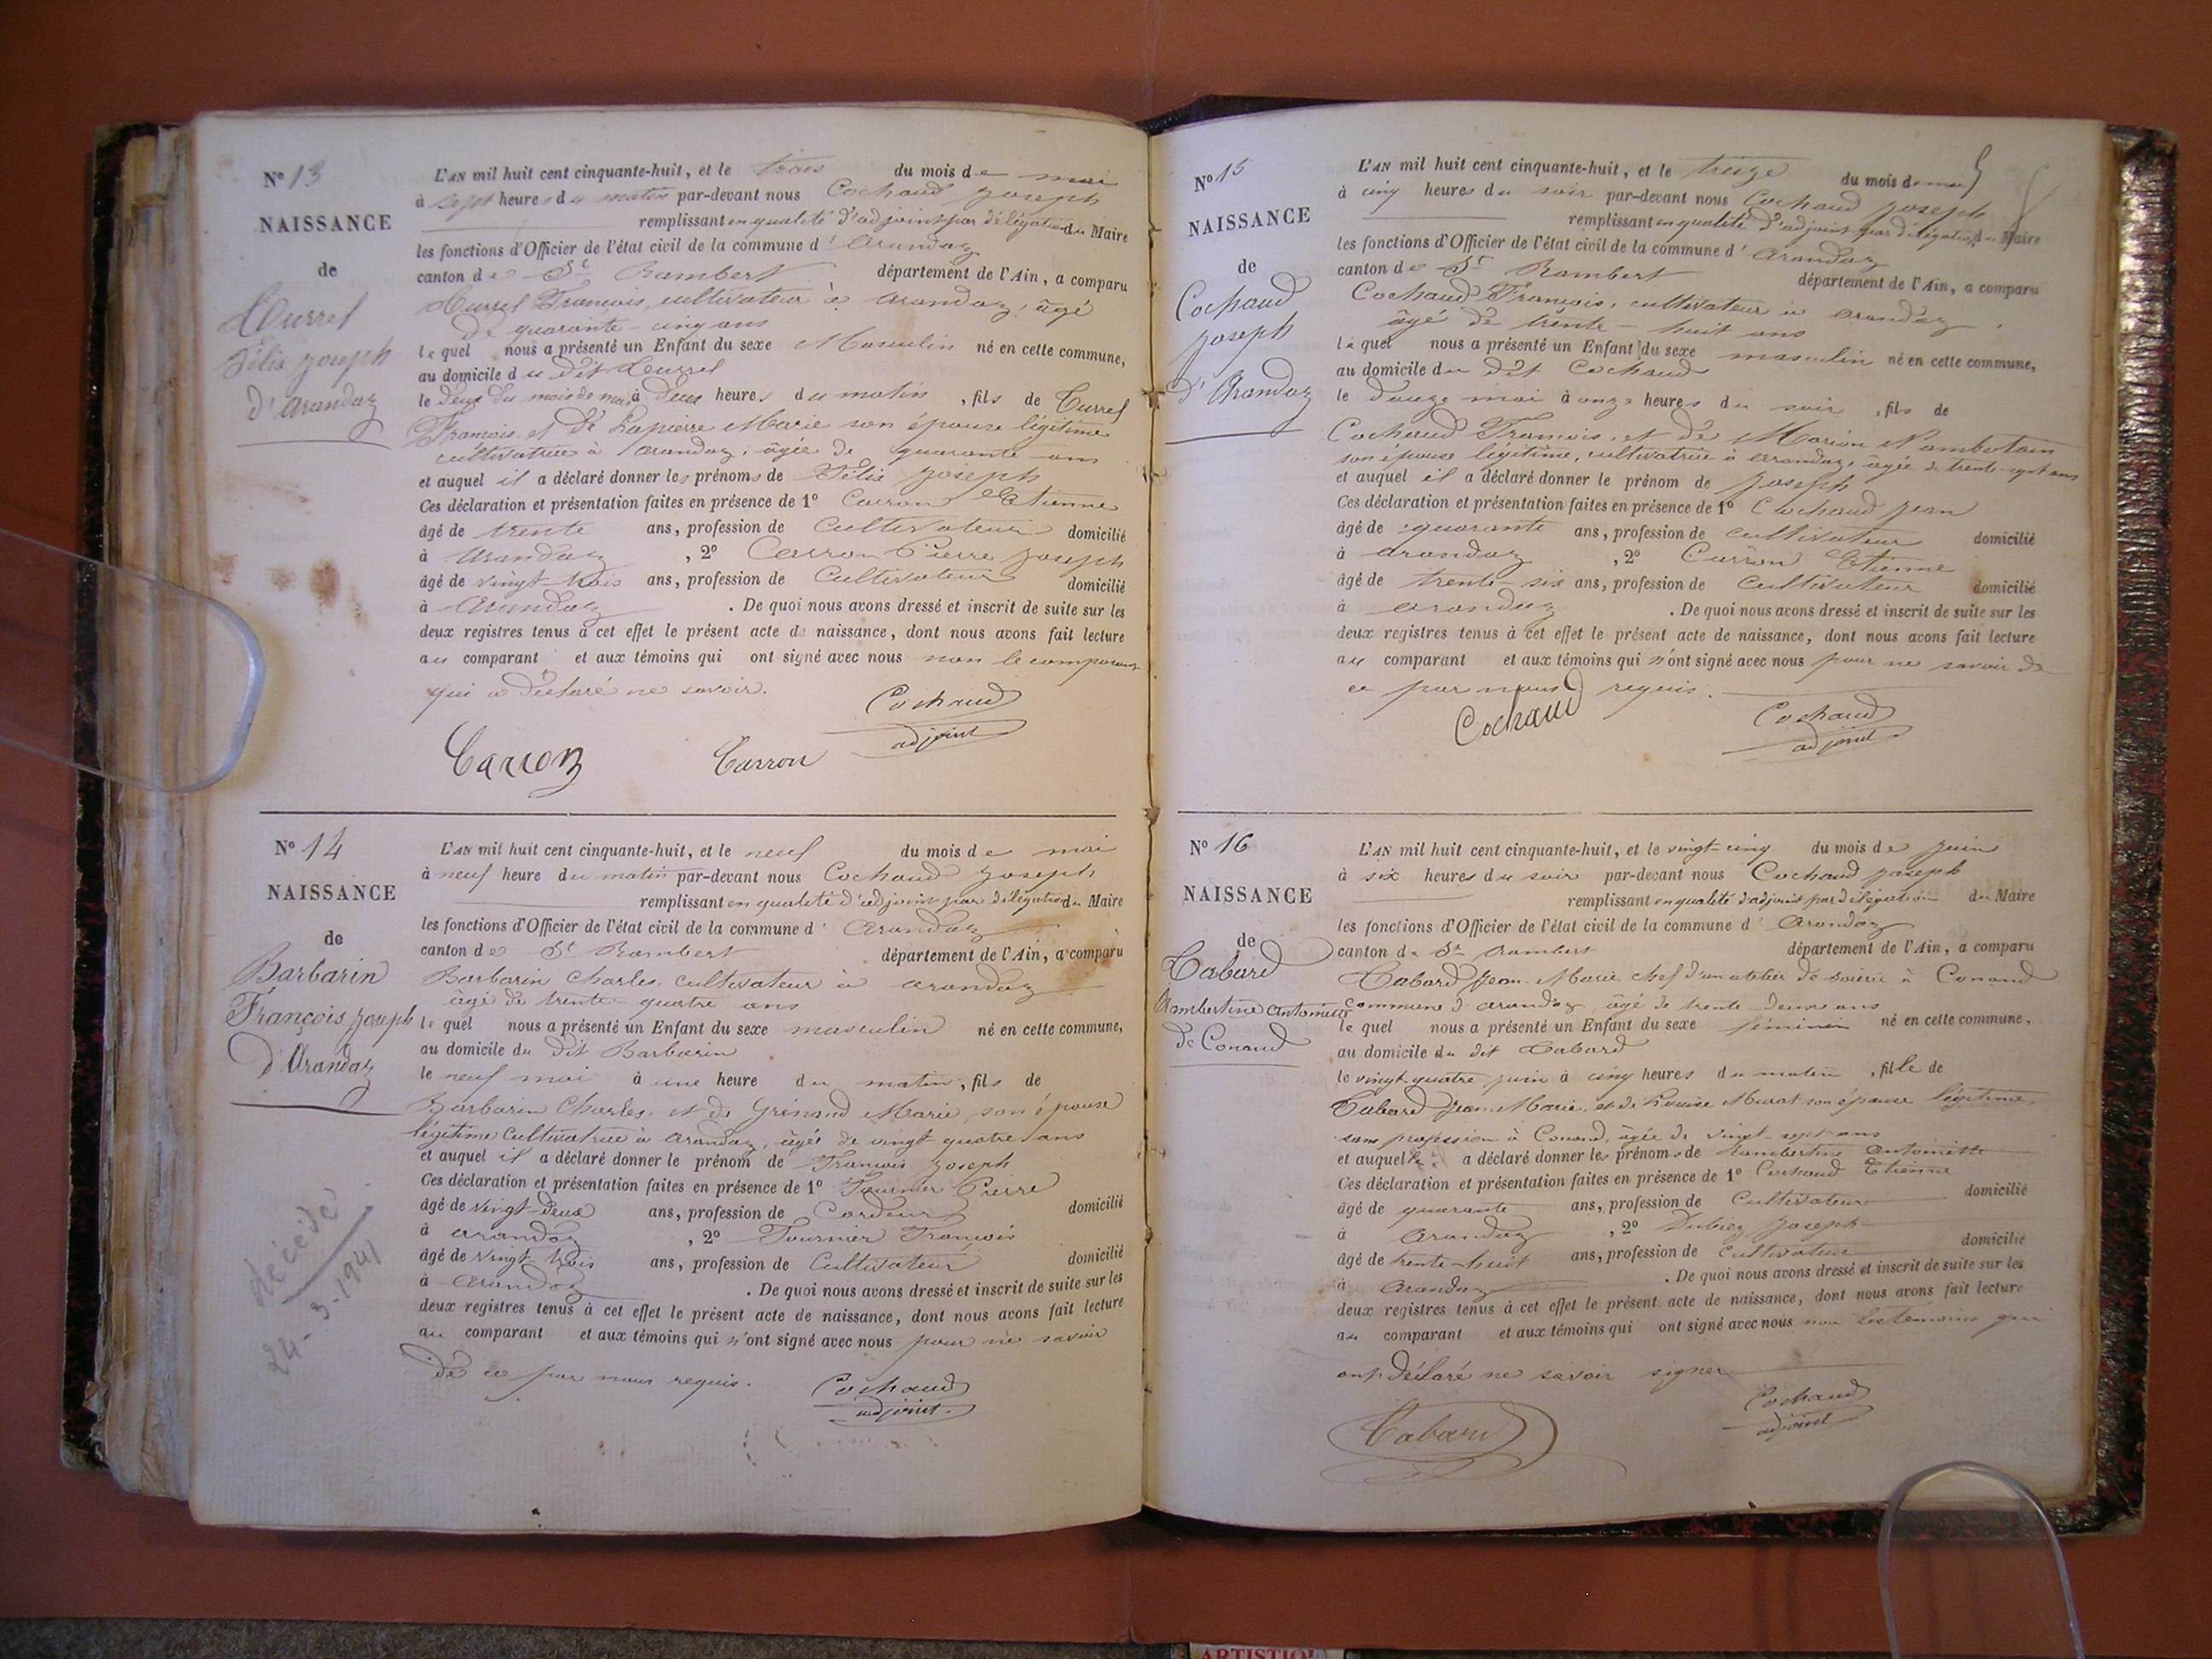 N° 13
NAISSANCE
de
Curref
Félix joseph
d'Arandaz
L'AN mil huit cent cinquante-huit, et le trois du mois de mai
à sept heures du matin par-devant nous Cochaud joseph
remplissant en qualité d'adjoint par délégation du Maire
les fonctions d'Officier de l'état civil de la commune d'Arandaz
canton de St Rambert département de l'Ain, a comparu
François, cultivateur à arandaz, âgé
de quarante-cinq ans
le quel nous a présenté un Enfant du sexe Masculin né en cette commune,
au domicile du dit
le deux du mois de mai à deux heures du matin, fils de Curref
François et de Lapierre Marie son épouse légitime
cultivatrice à arandaz, âgée de quarante ans
et auquel il a déclaré donner les prénoms de Félix joseph
Ces déclaration et présentation faites en présence de 1° Carron Etienne
âgé de trente ans, profession de Cultivateur domicilié
à arandaz, 2° Carron Pierre joseph
âgé de vingt-trois ans, profession de Cultivateur domicilié
à Arandaz. De quoi nous avons dressé et inscrit de suite sur les
deux registres tenus à cet effet le présent acte de naissance, dont nous avons fait lecture
au comparant et aux témoins qui ont signé avec nous non le comparant
qui a déclaré ne savoir.
Cochaud
adjoint
Carron Carron
N° 14
NAISSANCE
de
Barbarin
François joseph
d'Arandaz
décédé
24-3-1941
L'AN mil huit cent cinquante-huit, et le neuf du mois de mai
à neuf heure du matin par-devant nous Cochaud joseph
remplissant en qualité d'adjoint par délégation du Maire
les fonctions d'Officier de l'état civil de la commune d'Arandaz
canton de St Rambert département de l'Ain, a comparu
Barbarin Charles, cultivateur à arandaz
âgé de trente-quatre ans
le quel nous a présenté un Enfant du sexe masculin né en cette commune,
au domicile du dit Barbarin
le neuf mai à une heure du matin, fils de
Barbarin Charles et de Grinand Marie, son épouse
légitime Cultivatrice à arandaz, âgée de vingt quatre ans
et auquel il a déclaré donner le prénom de François joseph
Ces déclaration et présentation faites en présence de 1° Fournier Pierre
âgé de vingt-deux ans, profession de Cordeur domicilié
à arandaz, 2° Fournier François
âgé de vingt trois ans, profession de Cultivateur domicilié
à Arandaz. De quoi nous avons dressé et inscrit de suite sur les
deux registres tenus à cet effet le présent acte de naissance, dont nous avons fait lecture
au comparant et aux témoins qui n'ont signé avec nous pour ne savoir
de ce par nous requis.
Cochaud
adjoint
N° 15
NAISSANCE
de
Cochaud
joseph
d'Arandaz
L'AN mil huit cent cinquante-huit, et le treize du mois de mai
à cinq heures du soir par-devant nous Cochaud joseph
remplissant en qualité d'adjoint par délégation du Maire
les fonctions d'Officier de l'état civil de la commune d'Arandaz
canton de St Rambert département de l'Ain, a comparu
Cochaud François, cultivateur à arandaz,
âgé de trente-huit ans
le quel nous a présenté un Enfant du sexe masculin né en cette commune,
au domicile du dit Cochaud
le douze mai à onze heures du soir, fils de
Cochaud François, et de Marion
son épouse légitime, cultivatrice à arrandaz, âgée de trente-sept ans
et auquel il a déclaré donner le prénom de joseph
Ces déclaration et présentation faites en présence de 1° Cochaud jean
âgé de quarante ans, profession de cultivateur domicilié
à arandaz, 2° Carron Etienne
âgé de trente-six ans, profession de Cultivateur domicilié
à arandaz. De quoi nous avons dressé et inscrit de suite sur les
deux registres tenus à cet effet le présent acte de naissance, dont nous avons fait lecture
au comparant et aux témoins qui n'ont signé avec nous pour ne savoir de
ce par nous requis.
Cochaud
Cochaud
adjoint
N° 16
NAISSANCE
de
Cabard
Rambertine antoinette
de Conand
L'AN mil huit cent cinquante-huit, et le vingt-cinq du mois de juin
à six heures du soir par-devant nous Cochaud joseph
remplissant en qualité d'adjoint par délégation du Maire
les fonctions d'Officier de l'état civil de la commune d'Arandaz
canton de St Rambert département de l'Ain, a comparu
Cabard Jean-Marie chef d'un atelier de soierie à Conand
commune d'arandaz âgé de trente-deux ans
le quel nous a présenté un Enfant du sexe féminin né en cette commune,
au domicile du dit Cabard
le vingt quatre juin à cinq heures du matin, fille de
Cabard Jean Marie et de Louise Murat son épouse légitime
sans profession à Conand, âgée de vingt-sept ans
et auquel a déclaré donner les prénoms de Rambertine Antoinette
Ces déclaration et présentation faites en présence de 1° Cochaud Etienne
âgé de quarante ans, profession de Cultivateur domicilié
à Arandaz, 2° joseph
âgé de trente-huit ans, profession de Cultivateur domicilié
à Arandaz. De quoi nous avons dressé et inscrit de suite sur les
deux registres tenus à cet effet le présent acte de naissance, dont nous avons fait lecture
au comparant et aux témoins qui ont signé avec nous non les témoins qui
ont déclaré ne savoir signer
Cochaud
adjoint
Cabard